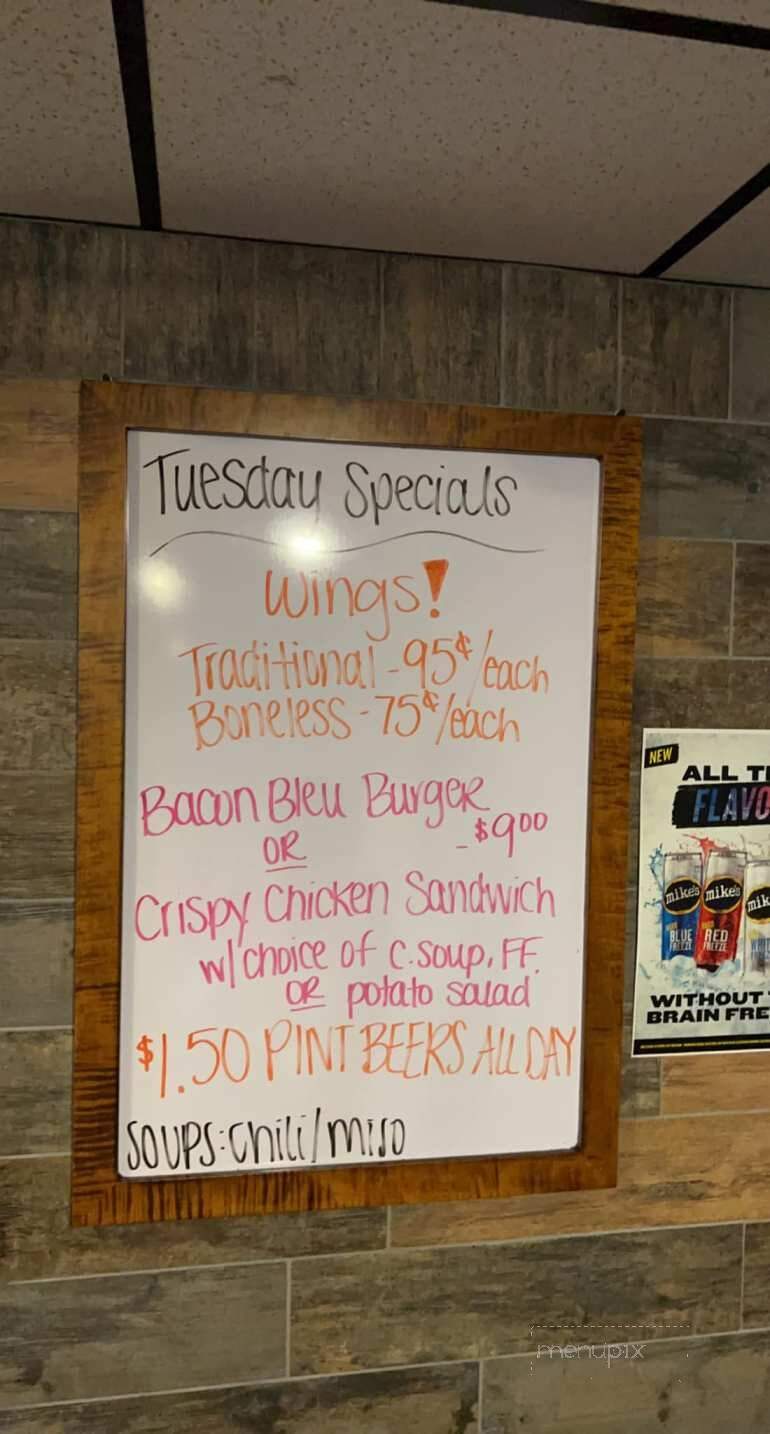 Tuesday Specials
Wings!
Traditional - 95¢/each
Boneless - 75¢/each
Bacon Bleu Burger
OR - $9.00
Crispy Chicken Sandwich
w/ choice of c. soup, FF.
OR potato salad
$1.50 PINT BEERS ALL DAY
SOUPS: chili/miso
NEW
ALL
FLAVO
mike's mike's mik
BLUE FREEZE
RED FREEZE
WITHOUT
BRAIN FRE
menupix